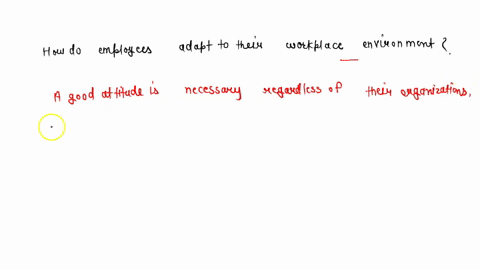 How do employees adapt to their workplace environment?
A good attitude is necessary regardless of their organizations.